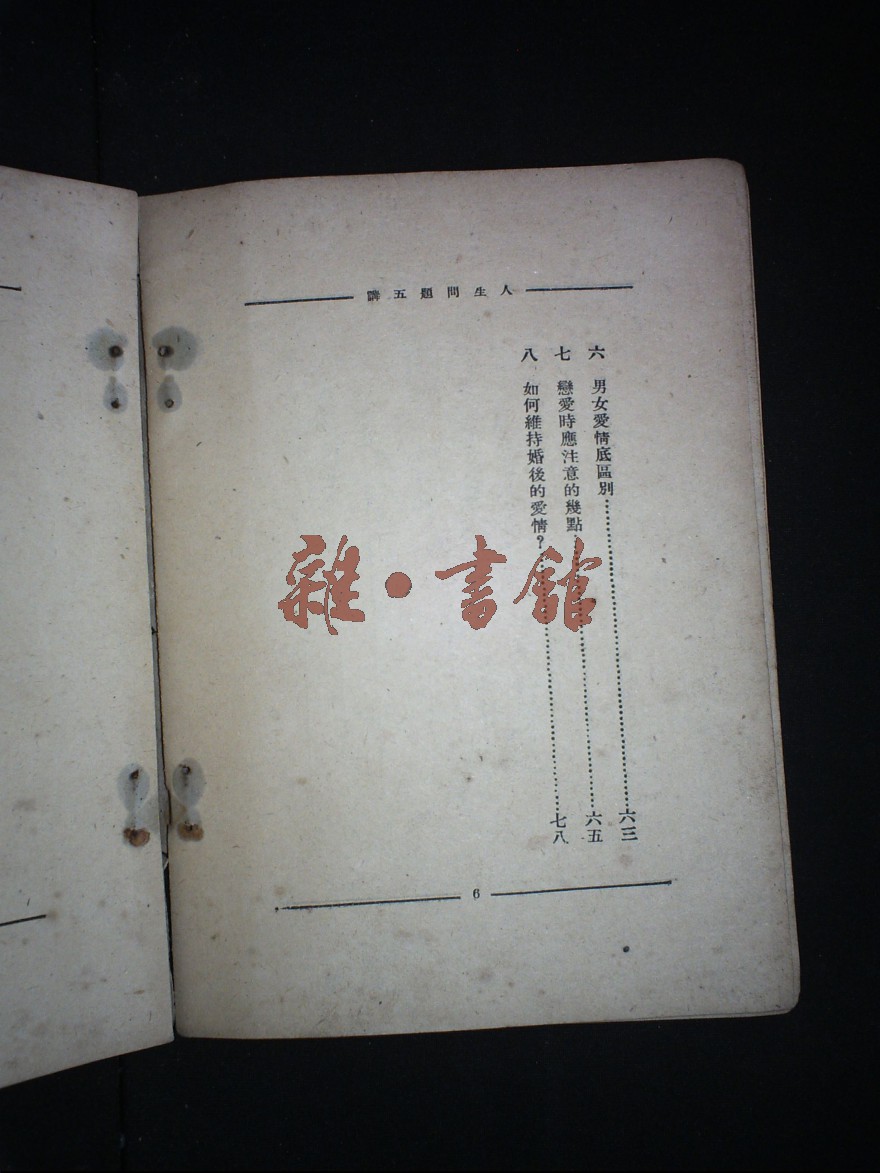 人生問題五講
六 男女愛情底區別……六三
七 戀愛時應注意的幾點……六五
八 如何維持婚後的愛情？……七八
雜・書館
6